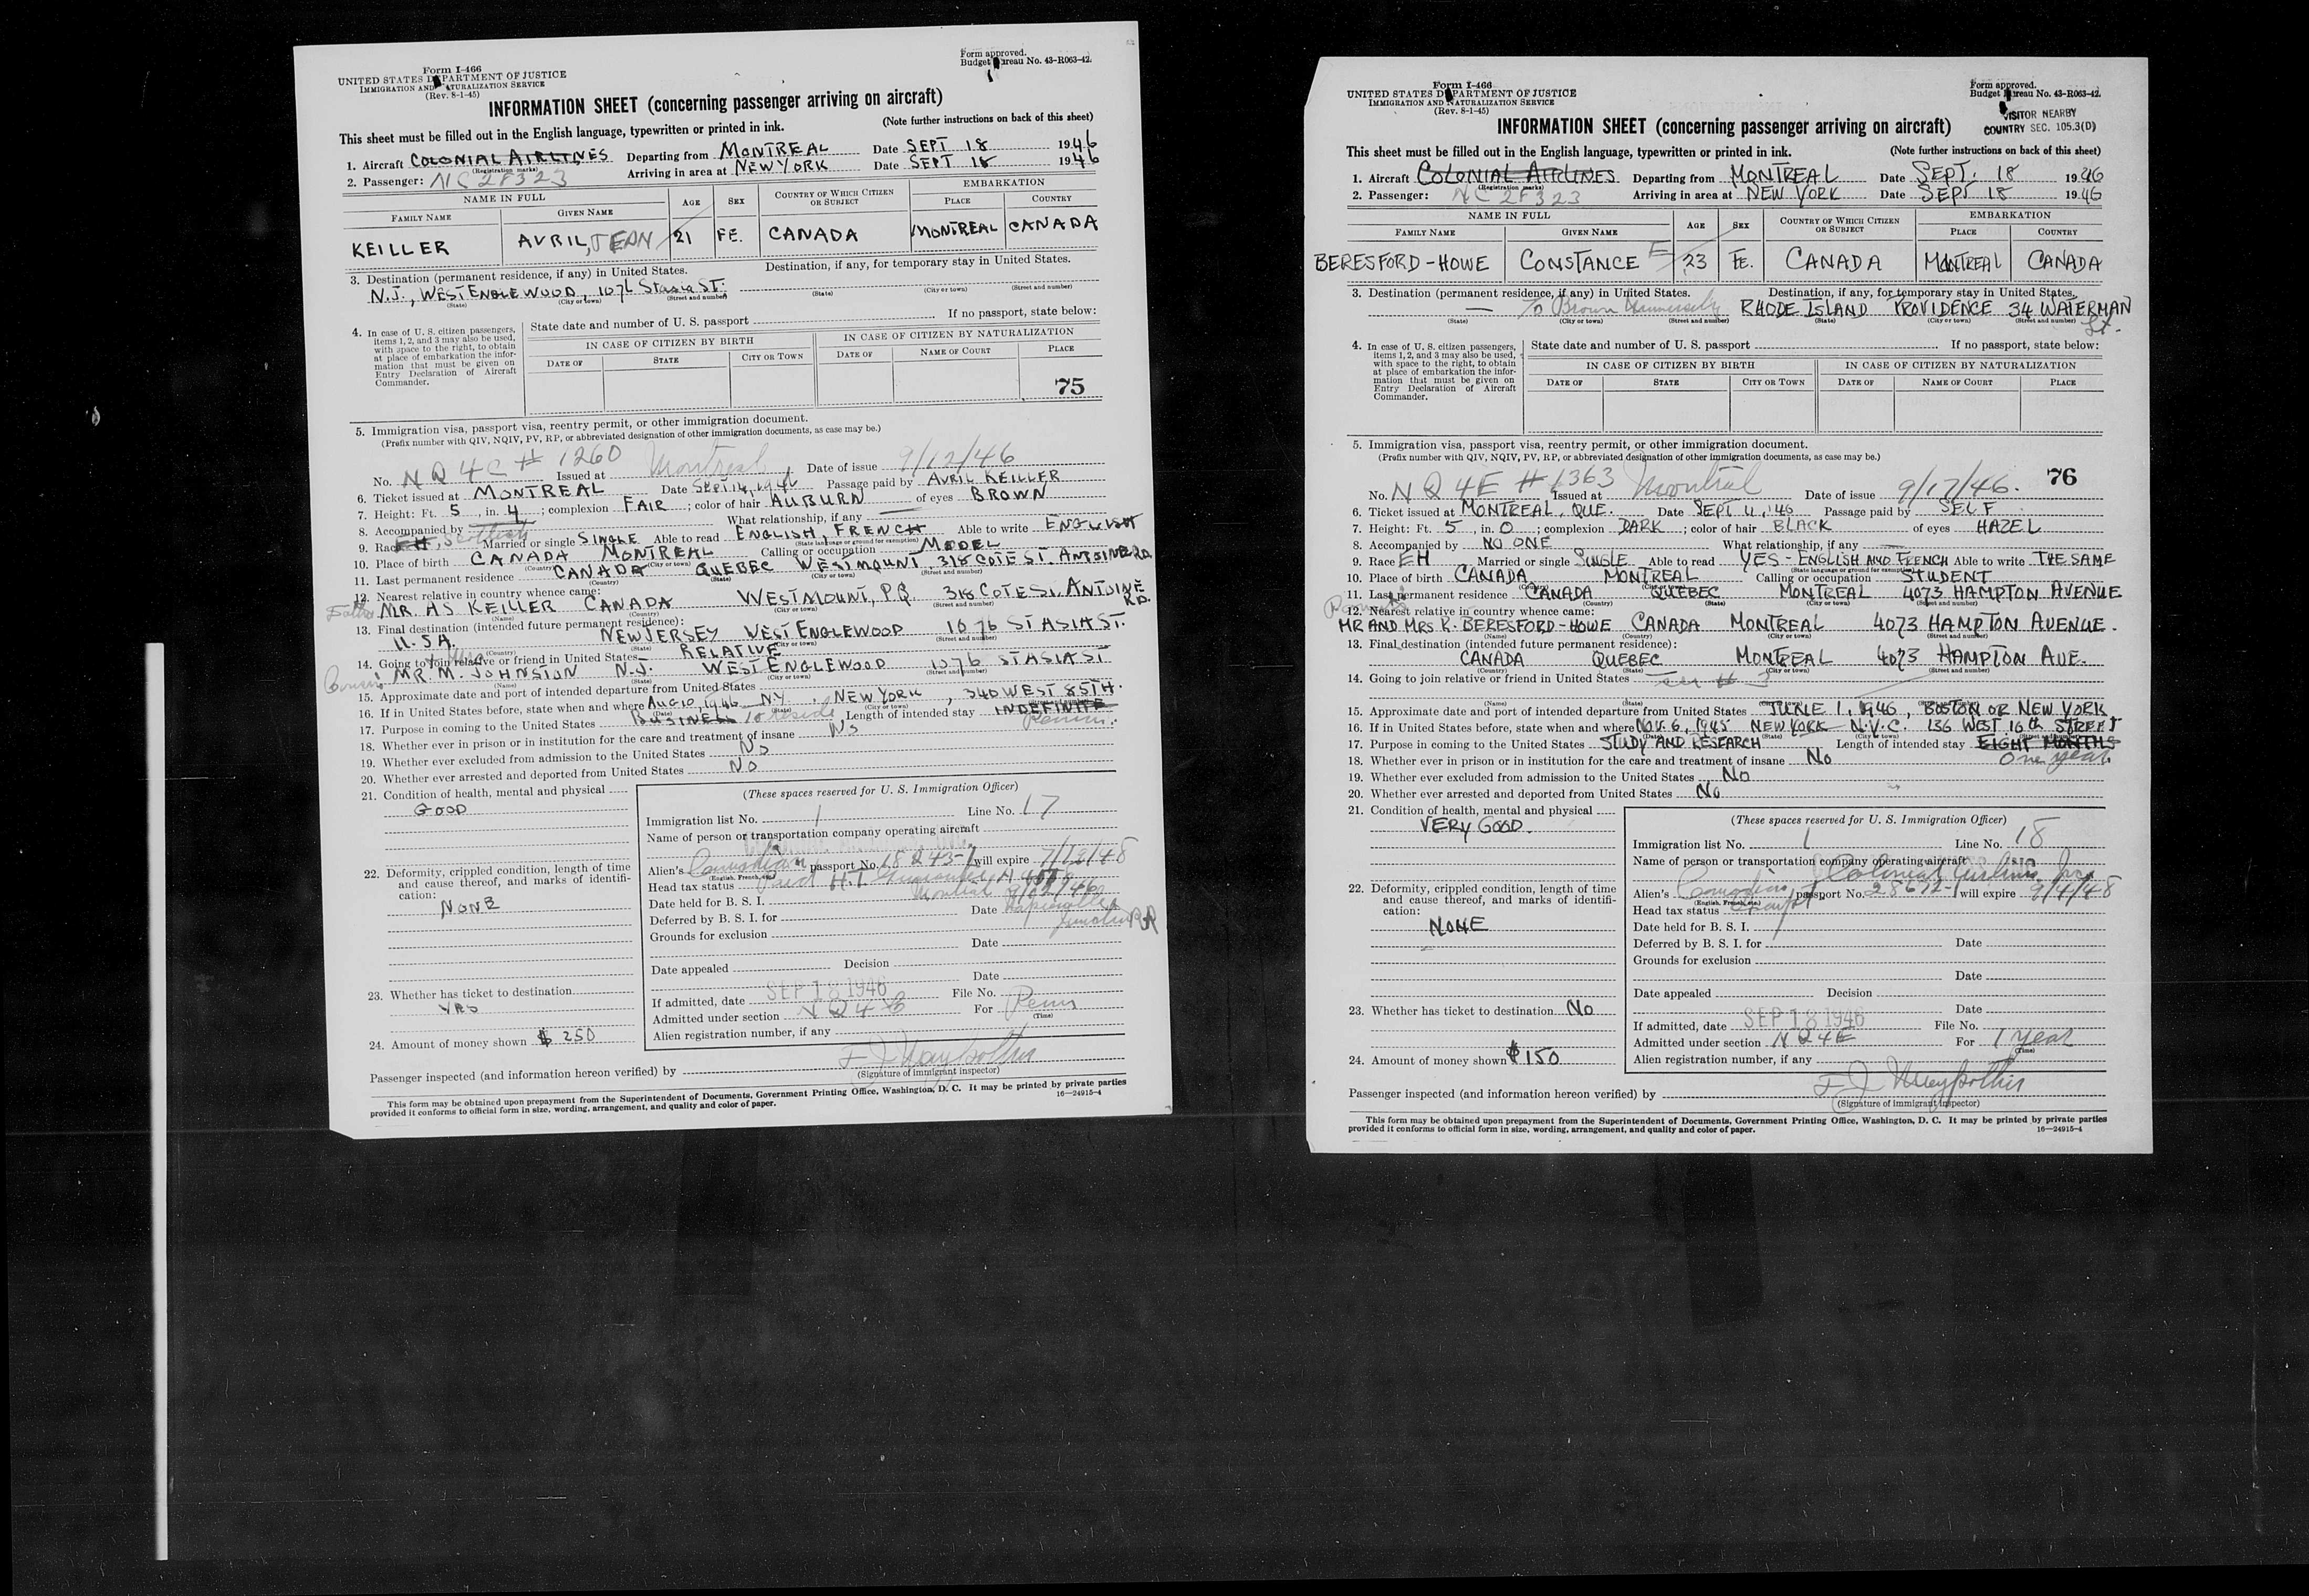 Form I-466
UNITED STATES DEPARTMENT OF JUSTICE
IMMIGRATION AND NATURALIZATION SERVICE
(Rev. 8-1-45)
Form approved.
Budget Bureau No. 43-R063-42.
INFORMATION SHEET (concerning passenger arriving on aircraft)
This sheet must be filled out in the English language, typewritten or printed in ink.
(Note further instructions on back of this sheet)
1. Aircraft COLONIAL AIRLINES Departing from MONTREAL Date SEPT 18 1946
(Registration marks)
2. Passenger: NC 28323 Arriving in area at NEW YORK Date SEPT 18 1946
NAME IN FULL AGE SEX COUNTRY OF WHICH CITIZEN OR SUBJECT EMBARKATION
FAMILY NAME GIVEN NAME PLACE COUNTRY
KEILLER AVRIL, JEAN 21 FE. CANADA MONTREAL CANADA
3. Destination (permanent residence, if any) in United States. Destination, if any, for temporary stay in United States.
N.J., WEST ENGLEWOOD, 1076 Stasia ST.
(State) (City or town) (Street and number) (State) (City or town) (Street and number)
4. In case of U. S. citizen passengers, items 1, 2, and 3 may also be used, with space to the right, to obtain at place of embarkation the information that must be given on Entry Declaration of Aircraft Commander.
State date and number of U. S. passport If no passport, state below:
IN CASE OF CITIZEN BY BIRTH IN CASE OF CITIZEN BY NATURALIZATION
DATE OF STATE CITY OR TOWN DATE OF NAME OF COURT PLACE
75
5. Immigration visa, passport visa, reentry permit, or other immigration document.
(Prefix number with QIV, NQIV, PV, RP, or abbreviated designation of other immigration documents, as case may be.)
No. NQ 4C # 1260 Issued at Montreal, Date of issue 9/12/46
6. Ticket issued at MONTREAL Date SEPT 14, 1946 Passage paid by AVRIL KEILLER
7. Height: Ft. 5, in. 4; complexion FAIR; color of hair AUBURN of eyes BROWN
8. Accompanied by What relationship, if any
9. Race EH, Scottish Married or single SINGLE Able to read ENGLISH, FRENCH Able to write ENGLISH
(State language or ground for exemption)
10. Place of birth CANADA MONTREAL Calling or occupation MODEL
(Country) (City or town)
11. Last permanent residence CANADA QUEBEC WESTMOUNT, 318 COTE ST. ANTOINE RD.
(Country) (State) (City or town) (Street and number)
12. Nearest relative in country whence came:
Father MR. AS KEILLER CANADA WESTMOUNT, P.Q. 318 COTE ST. ANTOINE RD.
(Name) (Country) (City or town) (Street and number)
13. Final destination (intended future permanent residence):
U.S.A. NEW JERSEY WEST ENGLEWOOD 1076 STASIA ST.
(Country) (State) (City or town) (Street and number)
14. Going to join relative or friend in United States RELATIVE
Cousins: MR. M. JOHNSTON N.J. WEST ENGLEWOOD 1076 STASIA ST
(Name) (State) (City or town) (Street and number)
15. Approximate date and port of intended departure from United States
16. If in United States before, state when and where AUG 10, 1946 NY, NEW YORK, 340 WEST 85TH.
(Date) (State) (City or town) (Street and number)
17. Purpose in coming to the United States BUSINESS To reside Length of intended stay INDEFINITE Perm.
18. Whether ever in prison or in institution for the care and treatment of insane No
19. Whether ever excluded from admission to the United States No
20. Whether ever arrested and deported from United States NO
21. Condition of health, mental and physical
GOOD
22. Deformity, crippled condition, length of time and cause thereof, and marks of identification:
NONE
23. Whether has ticket to destination
YES
24. Amount of money shown $ 250
(These spaces reserved for U. S. Immigration Officer)
Immigration list No. 1 Line No. 17
Name of person or transportation company operating aircraft
Alien's Canadian passport No. 18243-1 will expire 7/12/48
(English, French, etc.)
Head tax status Paid H.T. Guarantee
Date held for B. S. I. Montreal
Deferred by B. S. I. for Date
Grounds for exclusion
Date
Date appealed Decision
Date
If admitted, date SEP 18 1946 File No.
Admitted under section NQ4C For Perm
(Time)
Alien registration number, if any
Passenger inspected (and information hereon verified) by
(Signature of immigrant inspector)
This form may be obtained upon prepayment from the Superintendent of Documents, Government Printing Office, Washington, D. C. It may be printed by private parties
provided it conforms to official form in size, wording, arrangement, and quality and color of paper. 16—24915-4
Form I-466
UNITED STATES DEPARTMENT OF JUSTICE
IMMIGRATION AND NATURALIZATION SERVICE
(Rev. 8-1-45)
Form approved.
Budget Bureau No. 43-R063-42.
VISITOR NEARBY
COUNTRY SEC. 105.3(D)
INFORMATION SHEET (concerning passenger arriving on aircraft)
This sheet must be filled out in the English language, typewritten or printed in ink.
(Note further instructions on back of this sheet)
1. Aircraft COLONIAL AIRLINES Departing from MONTREAL Date SEPT. 18 1946
(Registration marks)
2. Passenger: NC 28323 Arriving in area at NEW YORK Date SEPT 18 1946
NAME IN FULL AGE SEX COUNTRY OF WHICH CITIZEN OR SUBJECT EMBARKATION
FAMILY NAME GIVEN NAME PLACE COUNTRY
BERESFORD-HOWE CONSTANCE E 23 FE. CANADA MONTREAL CANADA
3. Destination (permanent residence, if any) in United States. Destination, if any, for temporary stay in United States.
— To Brown University RHODE ISLAND PROVIDENCE 34 WATERMAN St.
(State) (City or town) (Street and number) (State) (City or town) (Street and number)
4. In case of U. S. citizen passengers, items 1, 2, and 3 may also be used, with space to the right, to obtain at place of embarkation the information that must be given on Entry Declaration of Aircraft Commander.
State date and number of U. S. passport If no passport, state below:
IN CASE OF CITIZEN BY BIRTH IN CASE OF CITIZEN BY NATURALIZATION
DATE OF STATE CITY OR TOWN DATE OF NAME OF COURT PLACE
5. Immigration visa, passport visa, reentry permit, or other immigration document.
(Prefix number with QIV, NQIV, PV, RP, or abbreviated designation of other immigration documents, as case may be.)
76
No. NQ 4E # 1363 Issued at Montreal Date of issue 9/17/46.
6. Ticket issued at MONTREAL, QUE. Date SEPT 11, '46 Passage paid by SELF
7. Height: Ft. 5, in. 0; complexion DARK; color of hair BLACK of eyes HAZEL
8. Accompanied by NO ONE What relationship, if any —
9. Race EH Married or single SINGLE Able to read YES - ENGLISH AND FRENCH Able to write THE SAME
(State language or ground for exemption)
10. Place of birth CANADA MONTREAL Calling or occupation STUDENT
(Country) (City or town)
11. Last permanent residence CANADA QUEBEC MONTREAL 4073 HAMPTON AVENUE
(Country) (State) (City or town) (Street and number)
12. Nearest relative in country whence came:
Parents MR AND MRS K. BERESFORD-HOWE CANADA MONTREAL 4073 HAMPTON AVENUE.
(Name) (Country) (City or town) (Street and number)
13. Final destination (intended future permanent residence):
CANADA QUEBEC MONTREAL 4073 HAMPTON AVE.
(Country) (State) (City or town) (Street and number)
14. Going to join relative or friend in United States see # 3
(Name) (State) (City or town) (Street and number)
15. Approximate date and port of intended departure from United States JUNE 1, 1946, BOSTON OR NEW YORK
16. If in United States before, state when and where NOV. 6, 1945 NEW YORK N.Y.C. 136 WEST 16th STREET
(Date) (State) (City or town) (Street and number)
17. Purpose in coming to the United States STUDY AND RESEARCH Length of intended stay EIGHT MONTHS
One year.
18. Whether ever in prison or in institution for the care and treatment of insane No
19. Whether ever excluded from admission to the United States No
20. Whether ever arrested and deported from United States No
21. Condition of health, mental and physical
VERY GOOD.
22. Deformity, crippled condition, length of time and cause thereof, and marks of identification:
NONE
23. Whether has ticket to destination No
24. Amount of money shown $150
(These spaces reserved for U. S. Immigration Officer)
Immigration list No. 1 Line No. 18
Name of person or transportation company operating aircraft
Colonial Airlines Inc
Alien's Canadian passport No. 28672-1 will expire 9/4/48
(English, French, etc.)
Head tax status Exempt
Date held for B. S. I.
Deferred by B. S. I. for Date
Grounds for exclusion
Date
Date appealed Decision
Date
If admitted, date SEP 18 1946 File No.
Admitted under section NQ4E For 1 year
(Time)
Alien registration number, if any
Passenger inspected (and information hereon verified) by
(Signature of immigrant inspector)
This form may be obtained upon prepayment from the Superintendent of Documents, Government Printing Office, Washington, D. C. It may be printed by private parties
provided it conforms to official form in size, wording, arrangement, and quality and color of paper. 16—24915-4